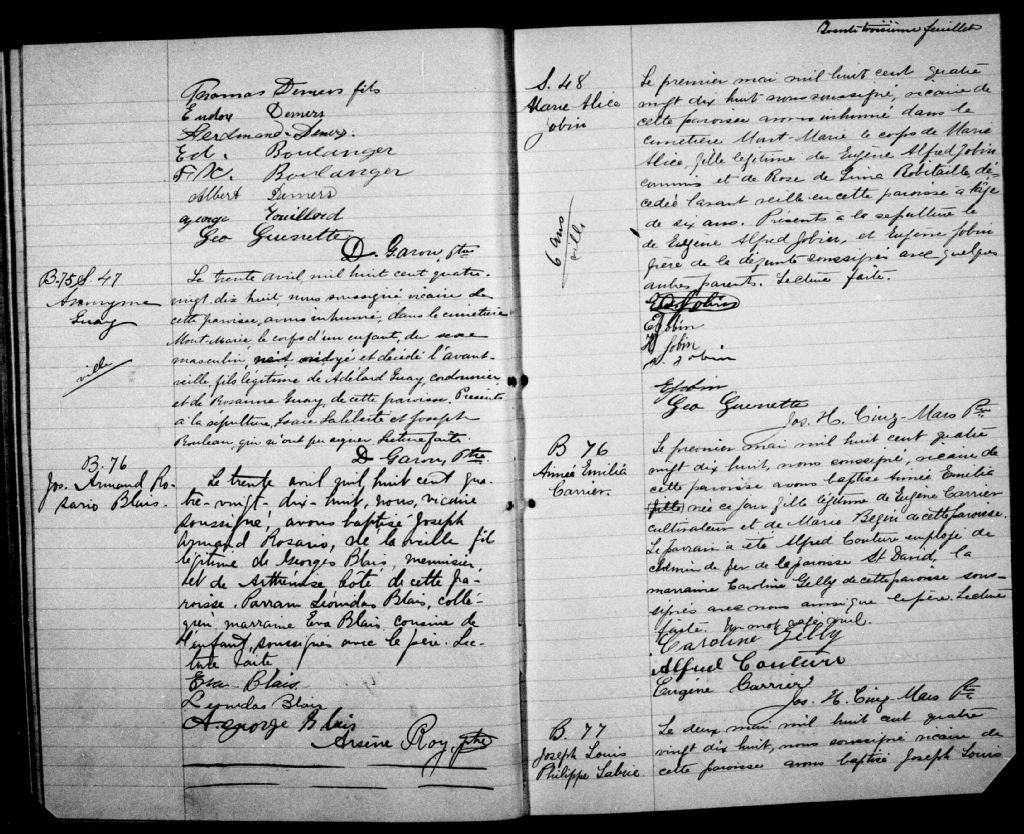 Thomas Demers fils
Demers
Ferdinand Demers
Ed. Boulanger
F.X. Boulanger
Albert Demers
George Rouillard
Geo Guenette
D. Garon, Ptre
B.75 S. 47
Anonyme
Guay
ville
Le trente avril, mil huit cent quatre-
vingt, dix huit, nous soussigné vicaire de
cette paroisse, avons inhumé, dans le cimetière
Mont-Marie, le corps d'un enfant, du sexe
masculin, ondoyé et décédé l'avant-
veille, fils légitime de Adélard Guay, cordonnier
et de Rosanna Guay de cette paroisse, Présents
à la sépulture, Laliberté et Joseph
Rouleau, qui n'ont pu signer, Lecture faite.
D. Garon, Ptre
B. 76
Jos. Armand Ro-
sario Blais.
Le trente avril mil huit cent qua-
tre-vingt-dix-huit, nous, vicaire
soussigné, avons baptisé Joseph
Armand Rosario, né la veille, fils
légitime de Georges Blais, menuisier,
et de Arthémise Côté de cette pa-
roisse. Parrain Léonidas Blais, collé-
gien, marraine Eva Blais, cousine de
l'enfant, soussignés avec le père. Lec-
ture faite
Eva Blais
Leonidas Blais
A. George Blais
Arsène Roy, ptre
Trente troisième feuillet
S. 48
Marie Alice
Jobin
6 ans
ville
Le premier mai mil huit cent quatre
vingt dix huit nous soussigné, vicaire de
cette paroisse avons inhumé dans le
cimetière Mont-Marie le corps de Marie
Alice, fille légitime de Eugène Alfred Jobin
commis et de Rose de Lima Robitaille, dé-
cédée l'avant veille en cette paroisse a l'âge
de six ans. Présents a la sépulture le
de Eugène Alfred Jobin, et Eugène Jobin
frère de la défunte soussignés avec quelques
autres parents. Lecture faite.
Jobin
E Jobin
Jobin
Jobin
E Jobin
Geo Guenette
Jos. H. Cinq-Mars Ptre
B 76
Aimée Emilia
Carrier.
Le premier mai mil huit cent quatre
vingt dix huit, nous soussigné, vicaire de
cette paroisse avons baptisé Aimée Emilia
(fille) née ce jour fille légitime de Eugène Carrier
cultivateur et de Marie Bégin de cette paroisse.
Le parrain a été Alfred Couture employé de
chemin de fer de la paroisse St David, la
marraine Caroline Gelly de cette paroisse sous-
signés avec nous ainsi que le père. Lecture
faite. Un mot rayé nul.
Caroline Gelly
Alfred Couture
Eugène Carrier
Jos. H. Cinq-Mars Ptre
B 77
Joseph Louis
Philippe Labrie
Le deux mai mil huit cent quatre
vingt dix huit, nous soussigné vicaire de
cette paroisse avons baptisé Joseph Louis